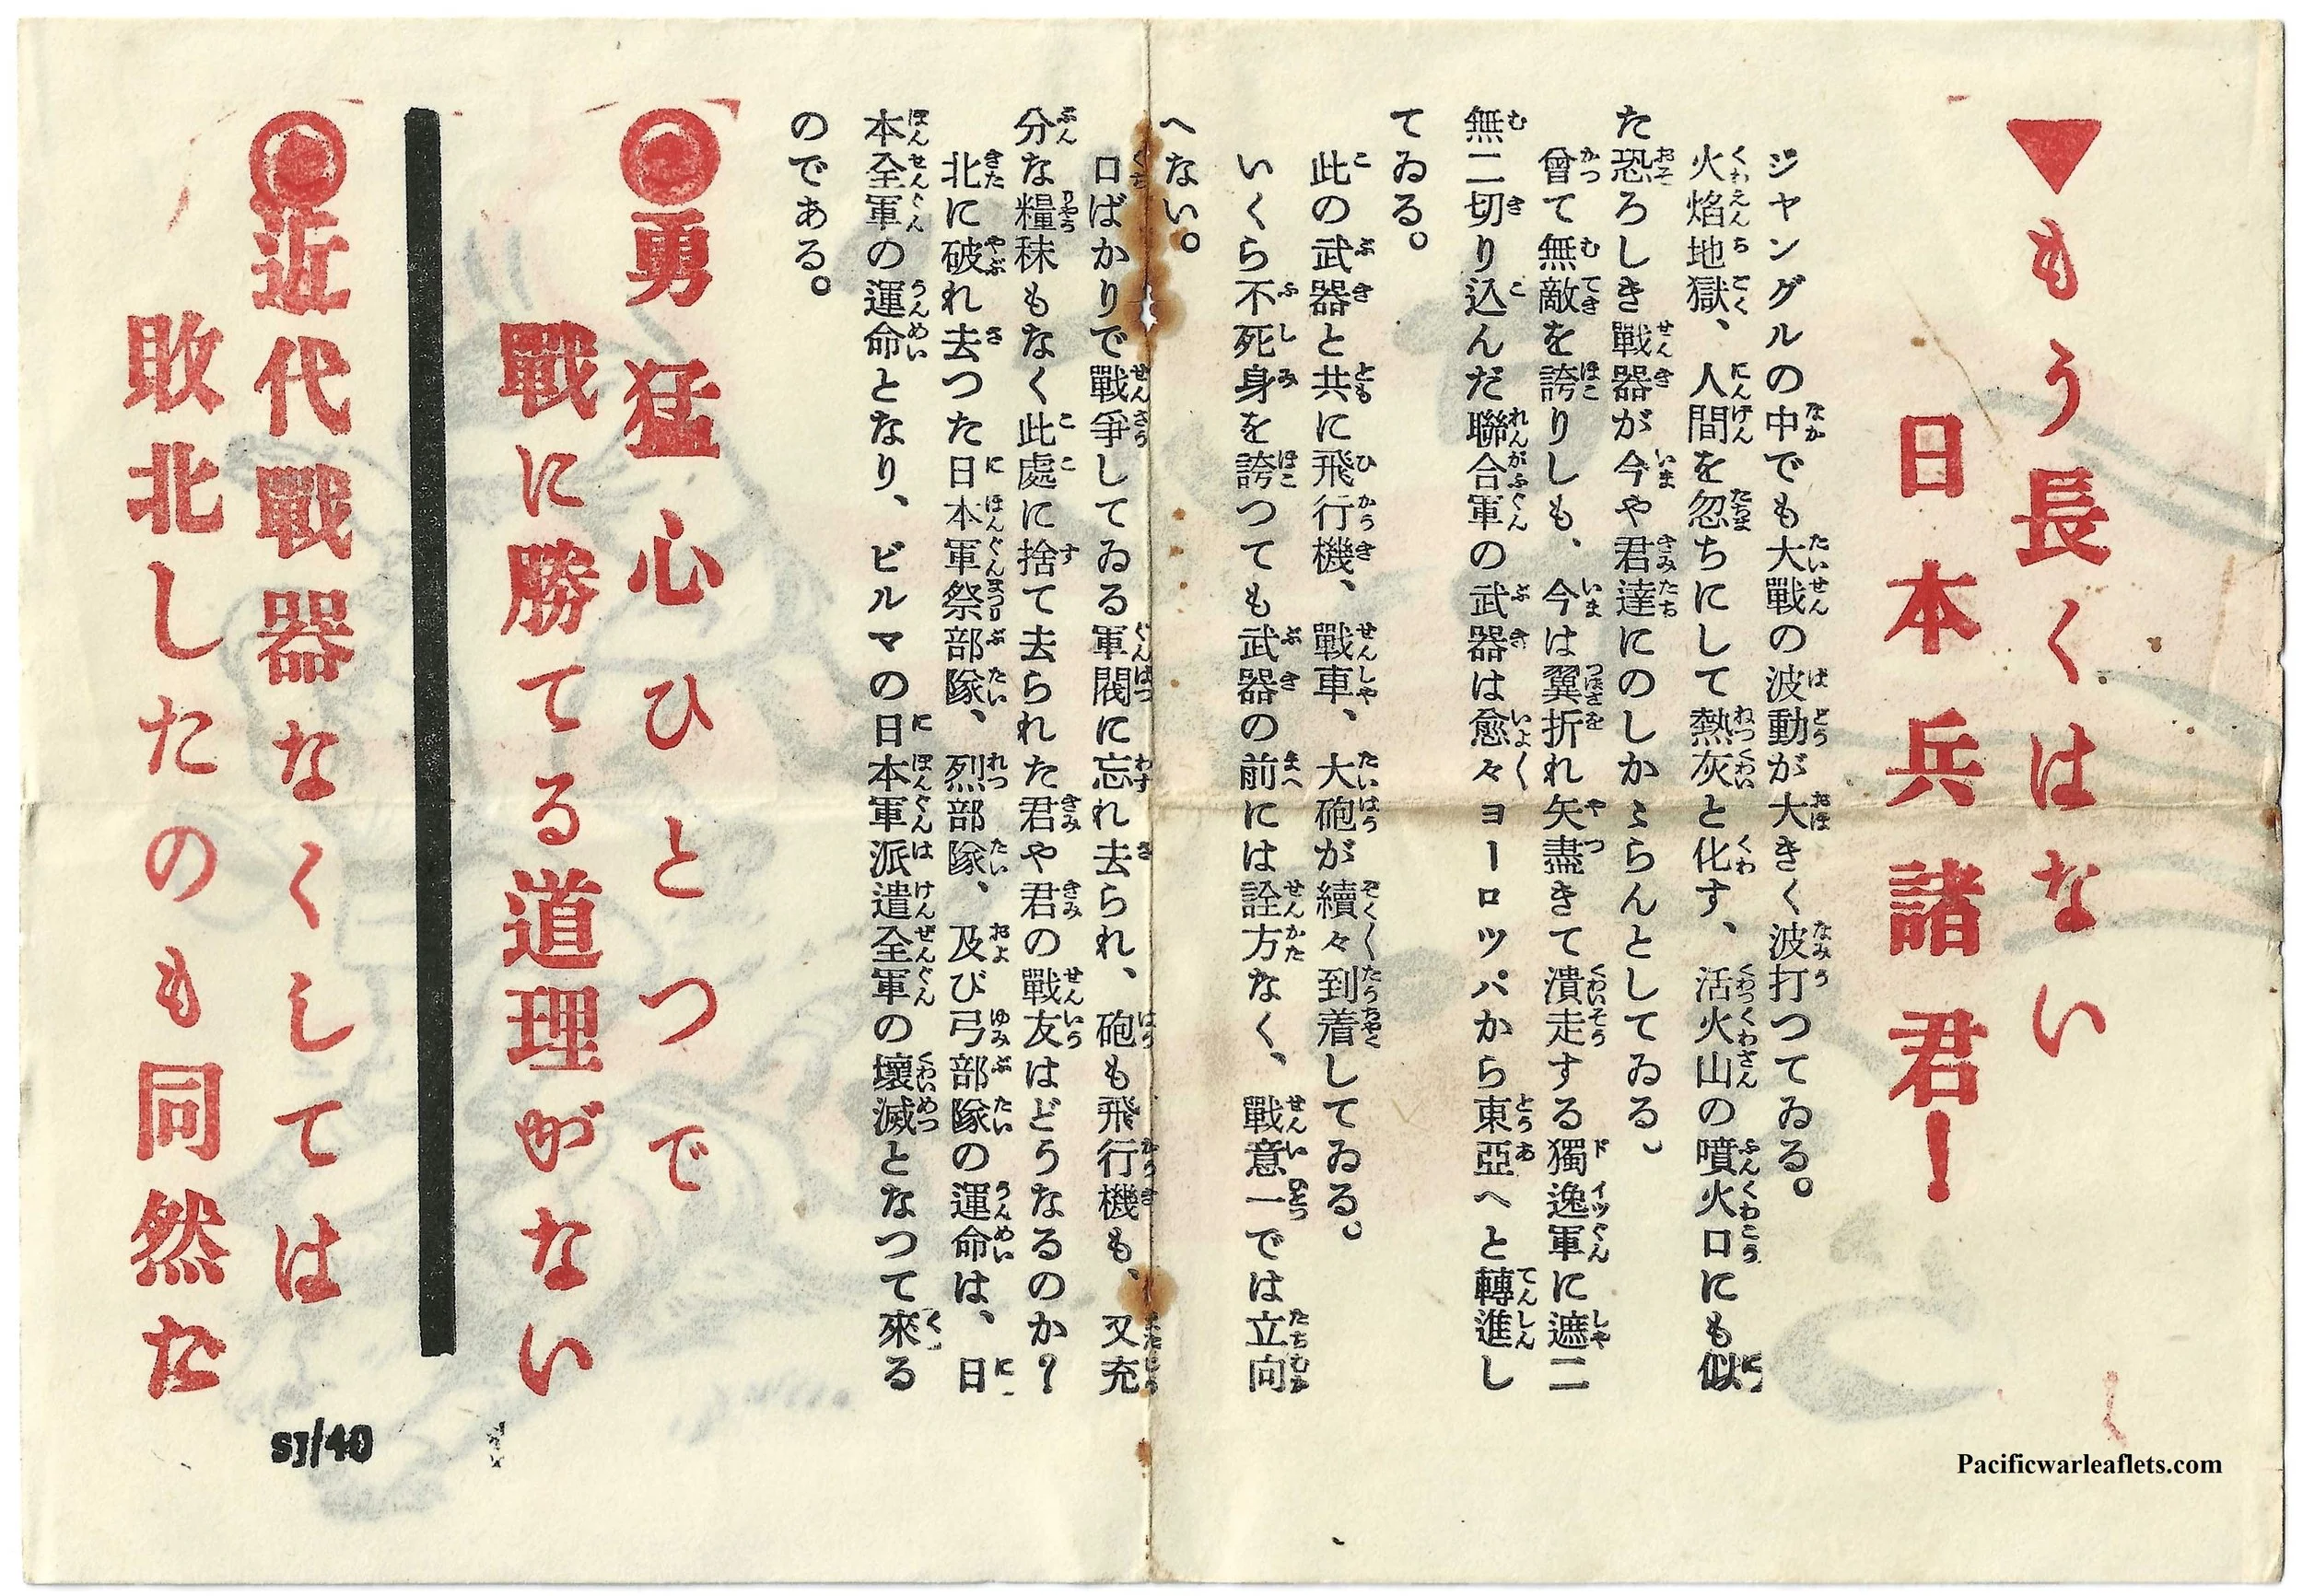 ▼もう長くはない
日本兵諸君!
ジャングルの中でも大戰の波動が大きく波打つてゐる。
火焰地獄、人間を忽ちにして熱灰と化す、活火山の噴火口にも似
た恐ろしき戰器が今や君達にのしかゝらんとしてゐる。
曾て無敵を誇りしも、今は翼折れ矢盡きて潰走する獨逸軍に遮二
無二切り込んだ聯合軍の武器は愈々ヨーロツパから東亞へと轉進し
てゐる。
此の武器と共に飛行機、戰車、大砲が續々到着してゐる。
いくら不死身を誇つても武器の前には詮方なく、戰意一では立向
へない。
口ばかりで戰爭してゐる軍閥に忘れ去られ、砲も飛行機も、又充
分な糧秣もなく此處に捨て去られた君や君の戰友はどうなるのか?
北に破れ去つた日本軍祭部隊、烈部隊、及び弓部隊の運命は、日
本全軍の運命となり、ビルマの日本軍派遣全軍の壞滅となつて來る
のである。
◉勇猛心ひとつで
戰に勝てる道理がない
◉近代戰器なくしては
敗北したのも同然だ
SJ/40
Pacificwarleaflets.com